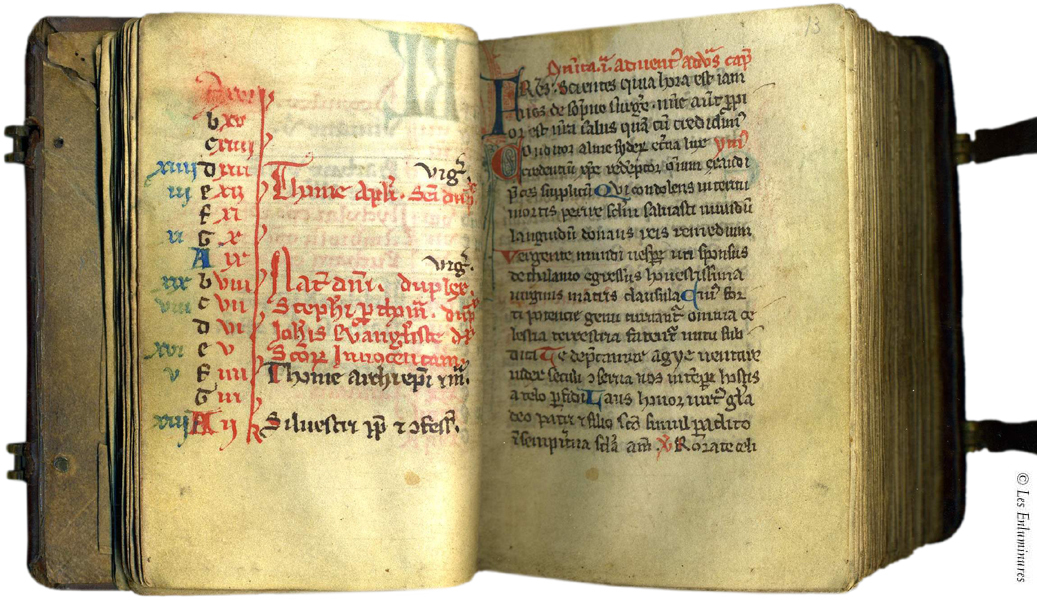 b xv
c xiiii
d xiii vigꝰ
iii e xii Thome apłi.
f xi
xi G x
A ix vigꝰ
xix b viii Nat̄ dn̄i. duplex
viii c vii Stephi ꝓthom̄. dup
d vi Joh̄is Evangliste
xvi e v Sc̄oꝝ Innocētium
v f iiii Thome archiep̄i ⁊ m̄.
G iii
A ii Silvestri pp̄ ⁊ ꝯfess.
13
Dn̄ica .i. advent᷒ ad v̄s cap̄
FRēs. Scientes quia hora est iam
nos de sōpno surge᷒. nūc aūt ꝓpi
or est nr̄a salus quā cū credidim᷒
Conditor alme syderꝝ et̄na lux ymn᷒
credentiū xp̄e redēptor om̄ium exaudi
p̄ces supplicū Qui condolens interitu
mortis perire sclm̄ salvasti mundū
languidū donans reis remedium
Vergente mundi vesꝑe uti sponsus
de thalamo egressus honestissima
virginis matris clausula Cui᷒ for
ti potentie genu curvant᷒ omnia ce
lestia terrestria fatent᷒ nutu sub
dita Te dep̄camur agye venture
iudex secli ꝯserva nos in tēꝑe hostis
a telo ꝑfidi Laus honor virt᷒ gl̄a
deo patri ⁊ filio sc̄o simul paclito
ī sempit̄na scl̄a am̄. ℣ Rorate celi
© Les Enluminures